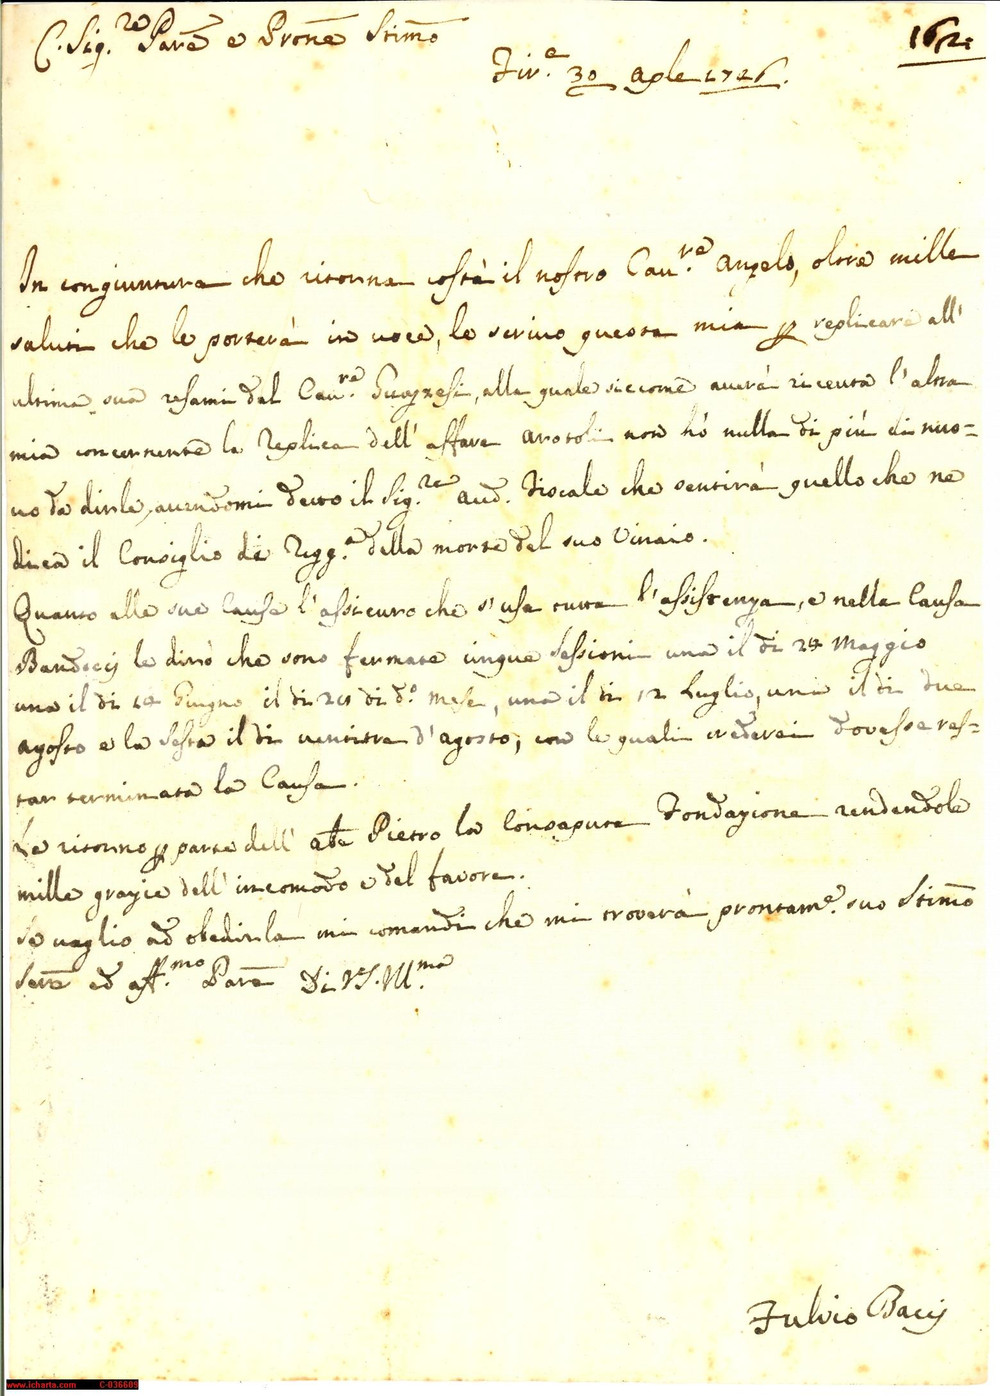 C. Sig.re Parē e Pronē Stimo
Fir.e 30 Aple 1726.
In congiuntura che ritorna costà il nostro Cau.re Angelo, oltre mille
saluti che le porterà in voce, le scrivo questa mia p replicare all'
ultima sua resami dal Cau.re, alla quale siccome averà ricevuta l'altra
mia concernente la Replica dell'affare non hò nulla di più di nuo=
vo da dirle, avendomi detto il Sig.re Aud. Fiscale che sentirà quello che ne
dica il Consiglio di Regg.a della morte del suo Vinaio.
Quanto alle sue Cause l'assicuro che s'usa tutta l'assistenza, e nella Causa
Banducij le dirò che sono fermate cinque sessioni una il dì 24 Maggio
una il dì 14 Giugno il dì di d.o mese, una il dì 12 Luglio, una il dì due
Agosto e la Sesta il dì ventitre d'agosto, con le quali crederei dovesse res=
tar terminata la Causa.
Le ritorno p parte dell' Abe Pietro la Consaputa Fondazione rendendole
mille grazie dell'incomodo e del favore.
Se vaglio ad obedirla mi comandi che mi troverà prontame. suo Stimo
Serē ed aff.mo Parē Di V.S. Ill.ma
Fulvio Bacij
www.icharta.com C-036609